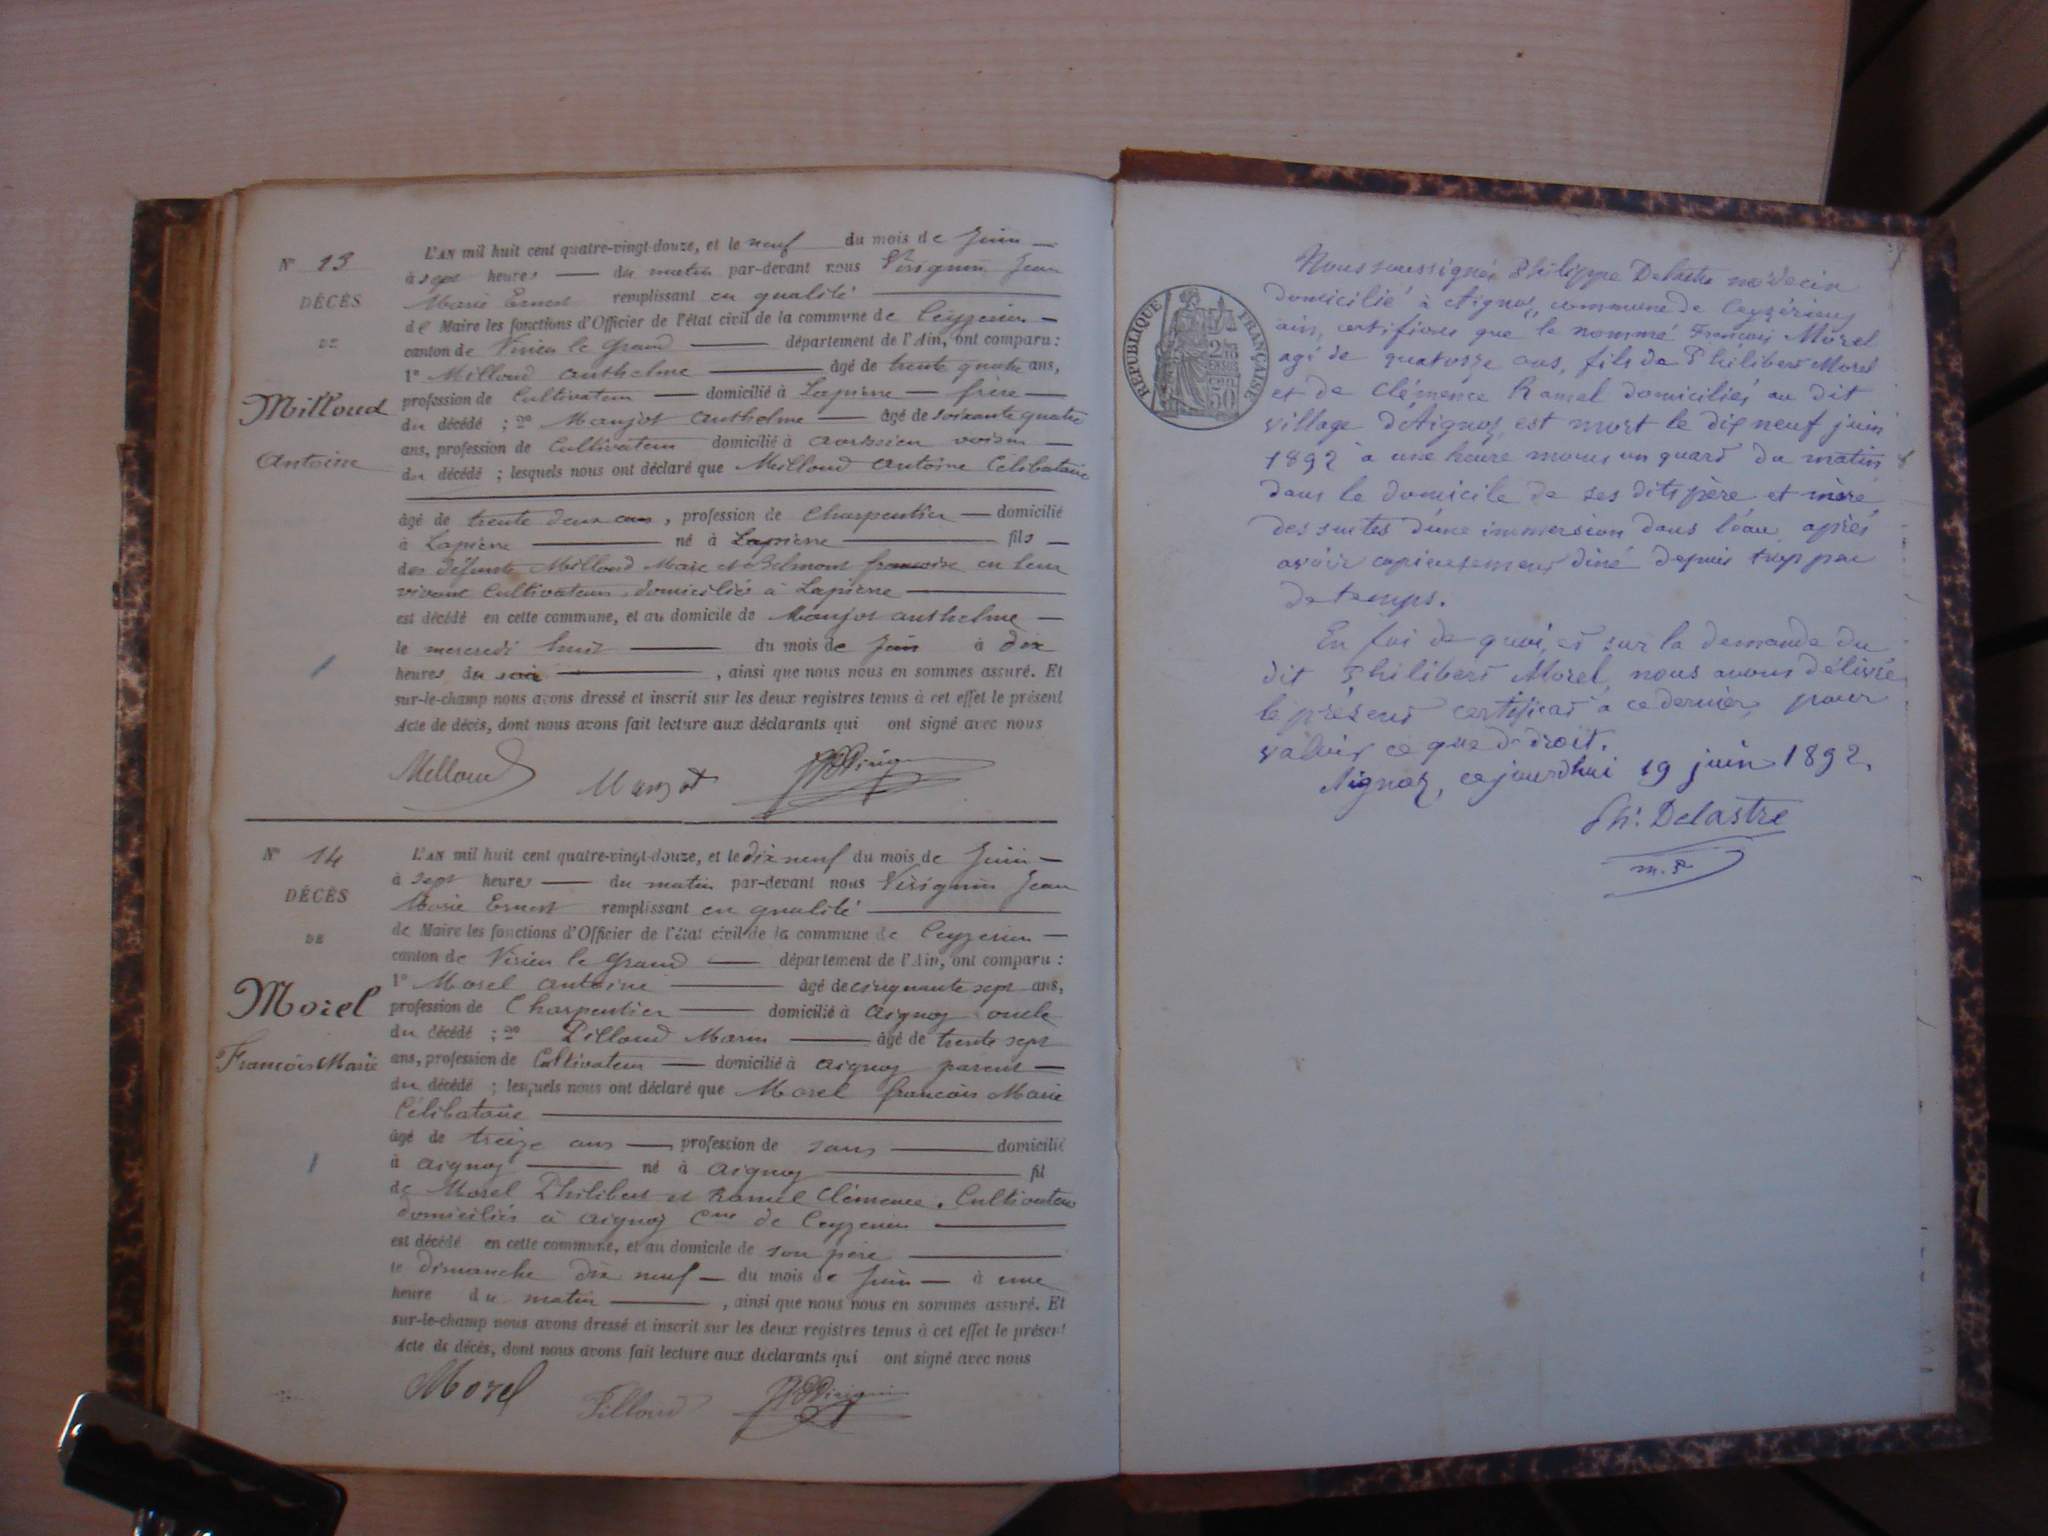 N° 13
DÉCÈS
DE
Milloud
Antoine
L'AN mil huit cent quatre-vingt-douze, et le neuf du mois de Juin
à sept heures du matin par-devant nous Virignin Jean
Marie Ernest remplissant en qualité
de Maire les fonctions d'Officier de l'état civil de la commune de Ceyzerieu
canton de Virieu le Grand département de l'Ain, ont comparu :
1° Milloud anthelme âgé de trente quatre ans,
profession de Cultivateur domicilié à Lapierre frère
du décédé ; 2° Manjot anthelme âgé de soixante quatre
ans, profession de Cultivateur domicilié à avrissieu voisin
du décédé ; lesquels nous ont déclaré que Milloud antoine Célibataire
âgé de trente deux ans, profession de Charpentier domicilié
à Lapierre né à Lapierre fils
des défunts Milloud Marc et Belmont francoise en leur
vivant Cultivateurs domiciliés à Lapierre
est décédé en cette commune, et au domicile de Manjot anthelme
le mercredi huit du mois de Juin à dix
heures du soir, ainsi que nous nous en sommes assuré. Et
sur-le-champ nous avons dressé et inscrit sur les deux registres tenus à cet effet le présent
Acte de décès, dont nous avons fait lecture aux déclarants qui ont signé avec nous
Milloud Manjot Virignin
N° 14
DÉCÈS
DE
Morel
François Marie
L'AN mil huit cent quatre-vingt-douze, et le dix neuf du mois de Juin
à sept heures du matin par-devant nous Virignin Jean
Marie Ernest remplissant en qualité
de Maire les fonctions d'Officier de l'état civil de la commune de Ceyzerieu
canton de Virieu le Grand département de l'Ain, ont comparu :
1° Morel antoine âgé de cinquante sept ans,
profession de Charpentier domicilié à aignoz oncle
du décédé ; 2° Pilloud Marin âgé de trente sept
ans, profession de Cultivateur domicilié à aignoz parent
du décédé ; lesquels nous ont déclaré que Morel francois Marie
Célibataire
âgé de treize ans, profession de sans domicilié
à aignoz né à aignoz fil
de Morel Philibert et Ramel Clémence. Cultivateurs
domiciliés à aignoz Cne de Ceyzerieu
est décédé en cette commune, et au domicile de son père
le dimanche dix neuf du mois de Juin à une
heure du matin, ainsi que nous nous en sommes assuré. Et
sur-le-champ nous avons dressé et inscrit sur les deux registres tenus à cet effet le présent
Acte de décès, dont nous avons fait lecture aux déclarants qui ont signé avec nous
Morel Pilloud Virignin
RÉPUBLIQUE FRANÇAISE
50
Nous soussignés Philippe Delastre médecin
domicilié à Aignoz, commune de Ceyzérieu
ain, certifions que le nommé François Morel
agé de quatorze ans, fils de Philibert Morel
et de Clémence Ramel domiciliés au dit
village d'Aignoz est mort le dix neuf juin
1892 à une heure moins un quart du matin
dans le domicile de ses dits père et mère
des suites d'une immersion dans l'eau, après
avoir copieusement diné depuis trop peu
de temps.
En foi de quoi, et sur la demande du
dit Philibert Morel, nous avons délivré
le présent certificat à ce dernier, pour
valoir ce que de droit.
Aignoz, ce jourd'hui 19 juin 1892.
Ph: Delastre